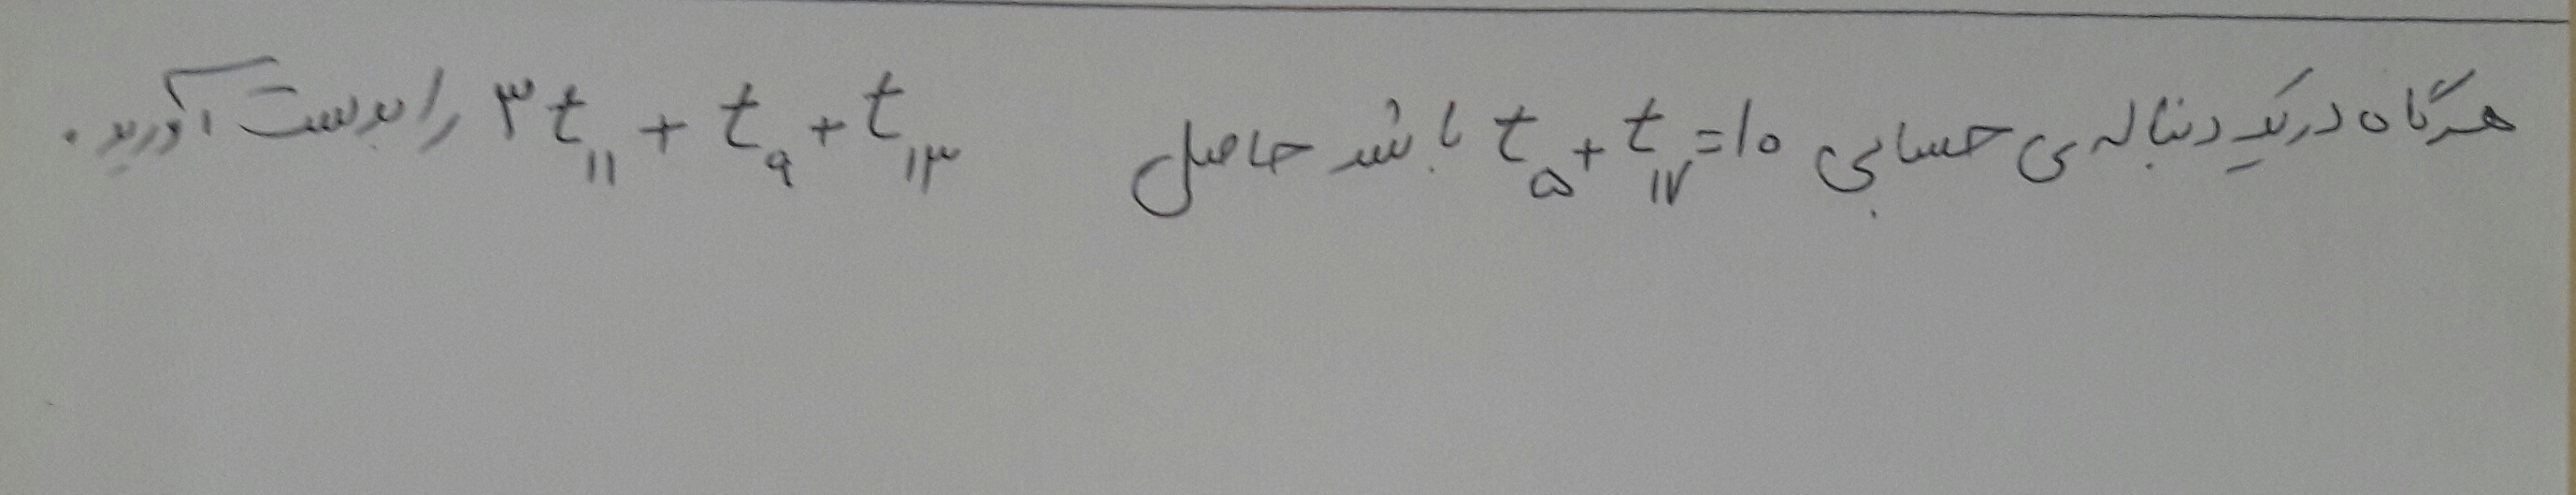 هرگاه در یک دنباله ی حسابی t₅ + t₁₇ = ۱۰ باشد حاصل ۳t₁₁ + t₉ + t₁₳ را بدست آورید.